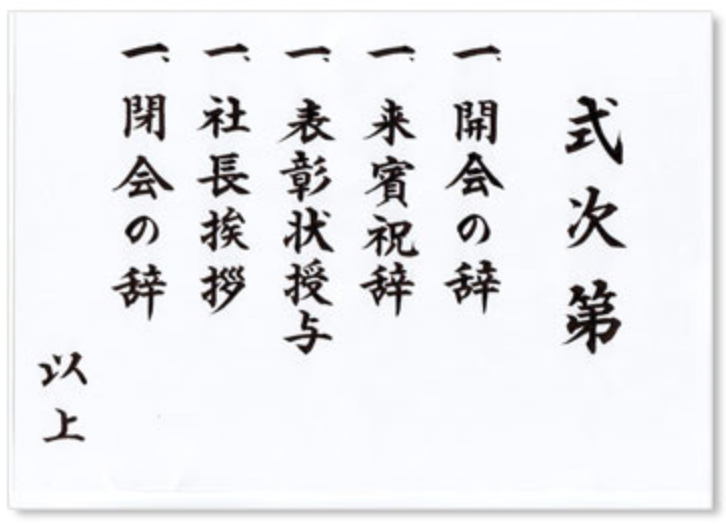 式次第
一、開会の辞
一、来賓祝辞
一、表彰状授与
一、社長挨拶
一、閉会の辞
以上